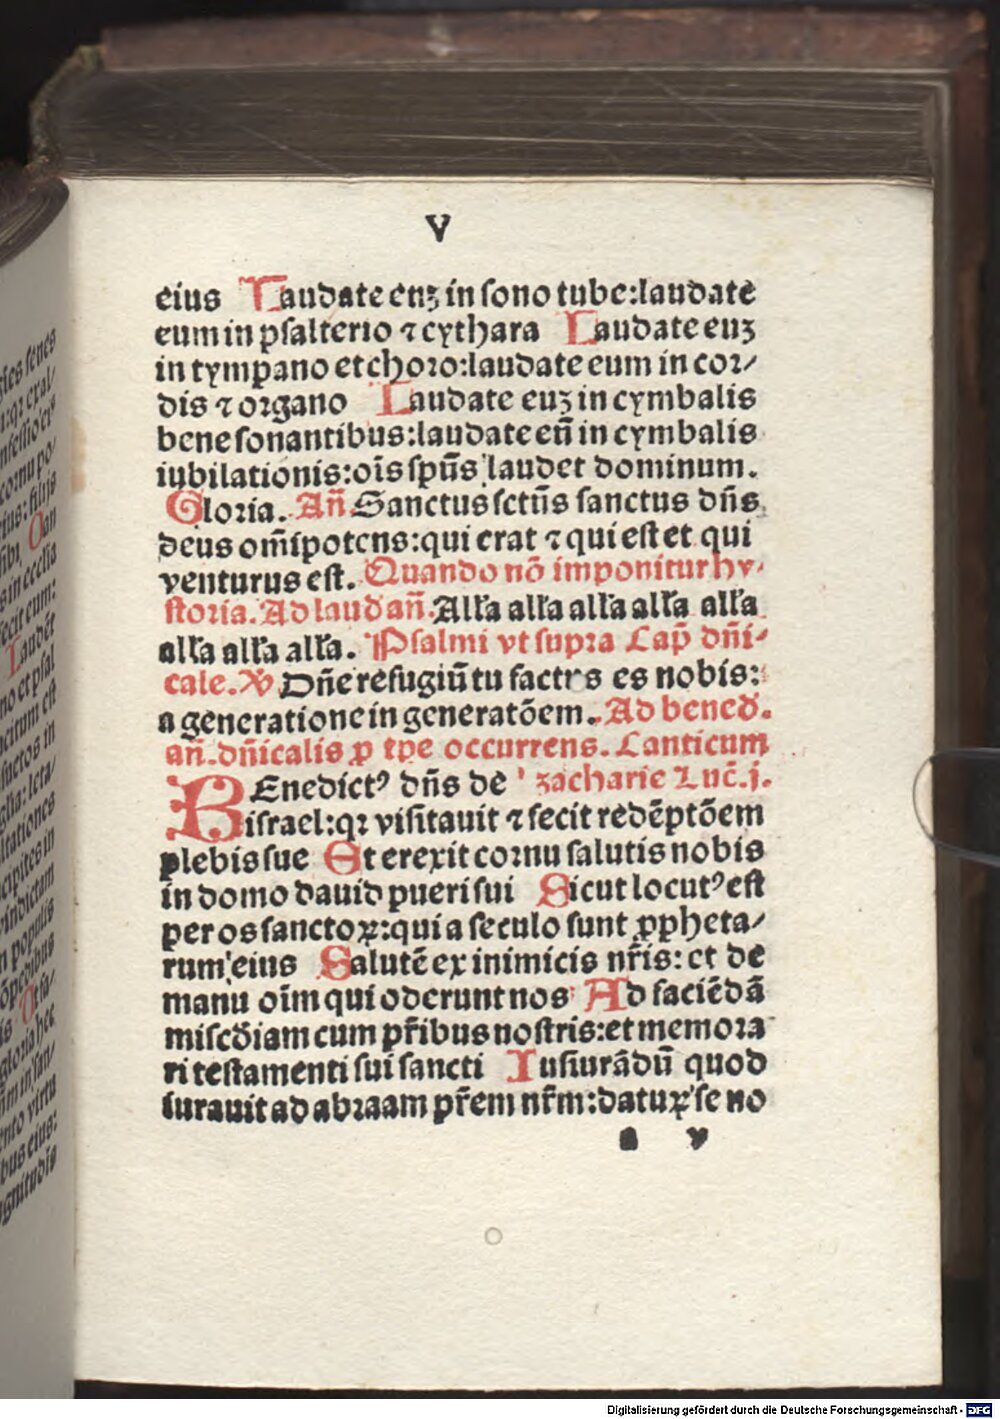 V
eius Laudate euꝫ in sono tube:laudate
eum in psalterio ⁊ cythara Laudate euꝫ
in tympano et choro:laudate eum in cor/
dis ⁊ organo Laudate euꝫ in cymbalis
bene sonantibus:laudate eū in cymbalis
iubilationis:oīs spūs laudet dominum.
Gloria. Añ. Sanctus sctūs sanctus dñs
deus om̄ipotens:qui erat ⁊ qui est et qui
venturus est. Quando nō imponitur hy/
storia. Ad laud añ. Alľa alľa alľa alľa alľa
alľa alľa alľa. Psalmi vt supra Cap̄ dñi/
cale. ꝟ Dñe refugiū tu factus es nobis:
a generatione in generatōem. Ad bened̄.
añ. dñicalis ꝑ tp̄e occurrens. Canticum
BEnedictꝰ dñs de' zacharie Luc̄.j.
israel:qꝛ visitauit ⁊ fecit redēptōem
plebis sue Et erexit cornu salutis nobis
in domo dauid pueri sui Sicut locutꝰ est
per os sanctoꝝ:qui a seculo sunt ꝓpheta/
rum eius Salutē ex inimicis nr̄is: et de
manu oīm qui oderunt nos Ad faciēdā
misc̄diam cum pr̄ibus nostris:et memora
ri testamenti sui sancti Iusiurādū quod
iurauit ad abraam pr̄em nr̄m:daturꝝ se no
a v
Digitalisierung gefördert durch die Deutsche Forschungsgemeinschaft - DFG